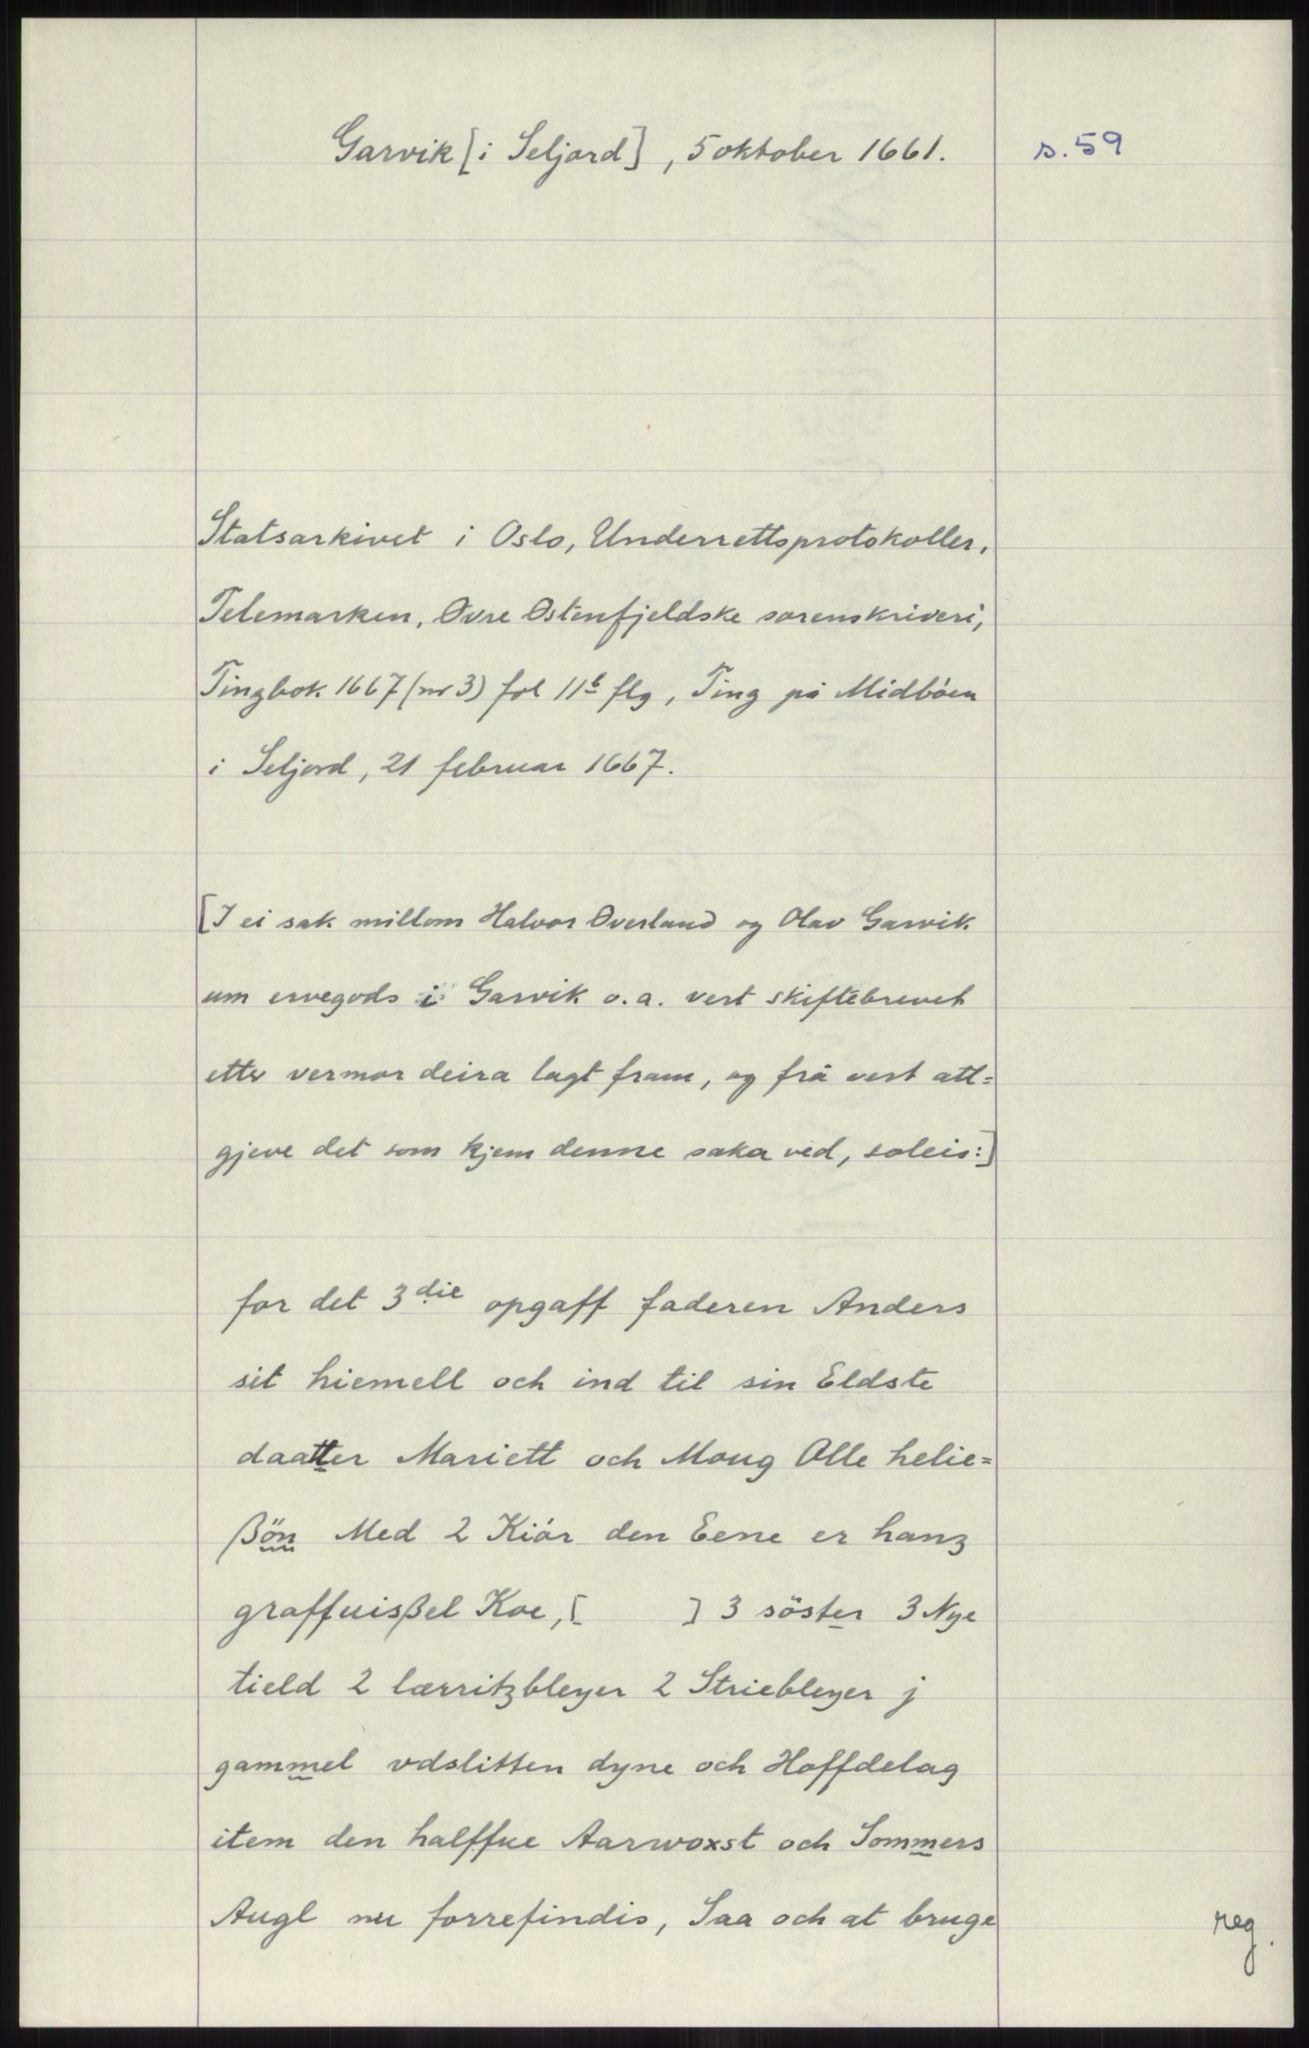 Garvik [i Seljord], 5 oktober 1661.
s. 59
Statsarkivet i Oslo, Underrettsprotokoller,
Telemarken, Øvre Østenfjeldske sorenskriveri,
Tingbok 1667 (nr 3) fol 11b flg, Ting på Midbøen
i Seljord, 21 februar 1667.
[I ei sak millom Halvor Øverland og Olav Garvik
um ervegods i Garvik o.a. vert skiftebrevet
etter vermor deira lagt fram, og frå vert att=
gjeve det som kjem denne saka ved, soleis:]
for det 3die opgaff faderen Anders
sit hiemell och ind til sin Eldste
daatter Mariett och Moug Olle helie=
ßön Med 2 Kiör den Eene er hanz
graffuisßel Koe, [ ] 3 söster 3 Nye
tield 2 lærritzbleyer 2 Striebleyer j
gammel vdslitten dyne och Hoffdelag
item den halffue Aarwoxst och Sommers
Augl nu forrefindis, Saa och at bruge
reg.